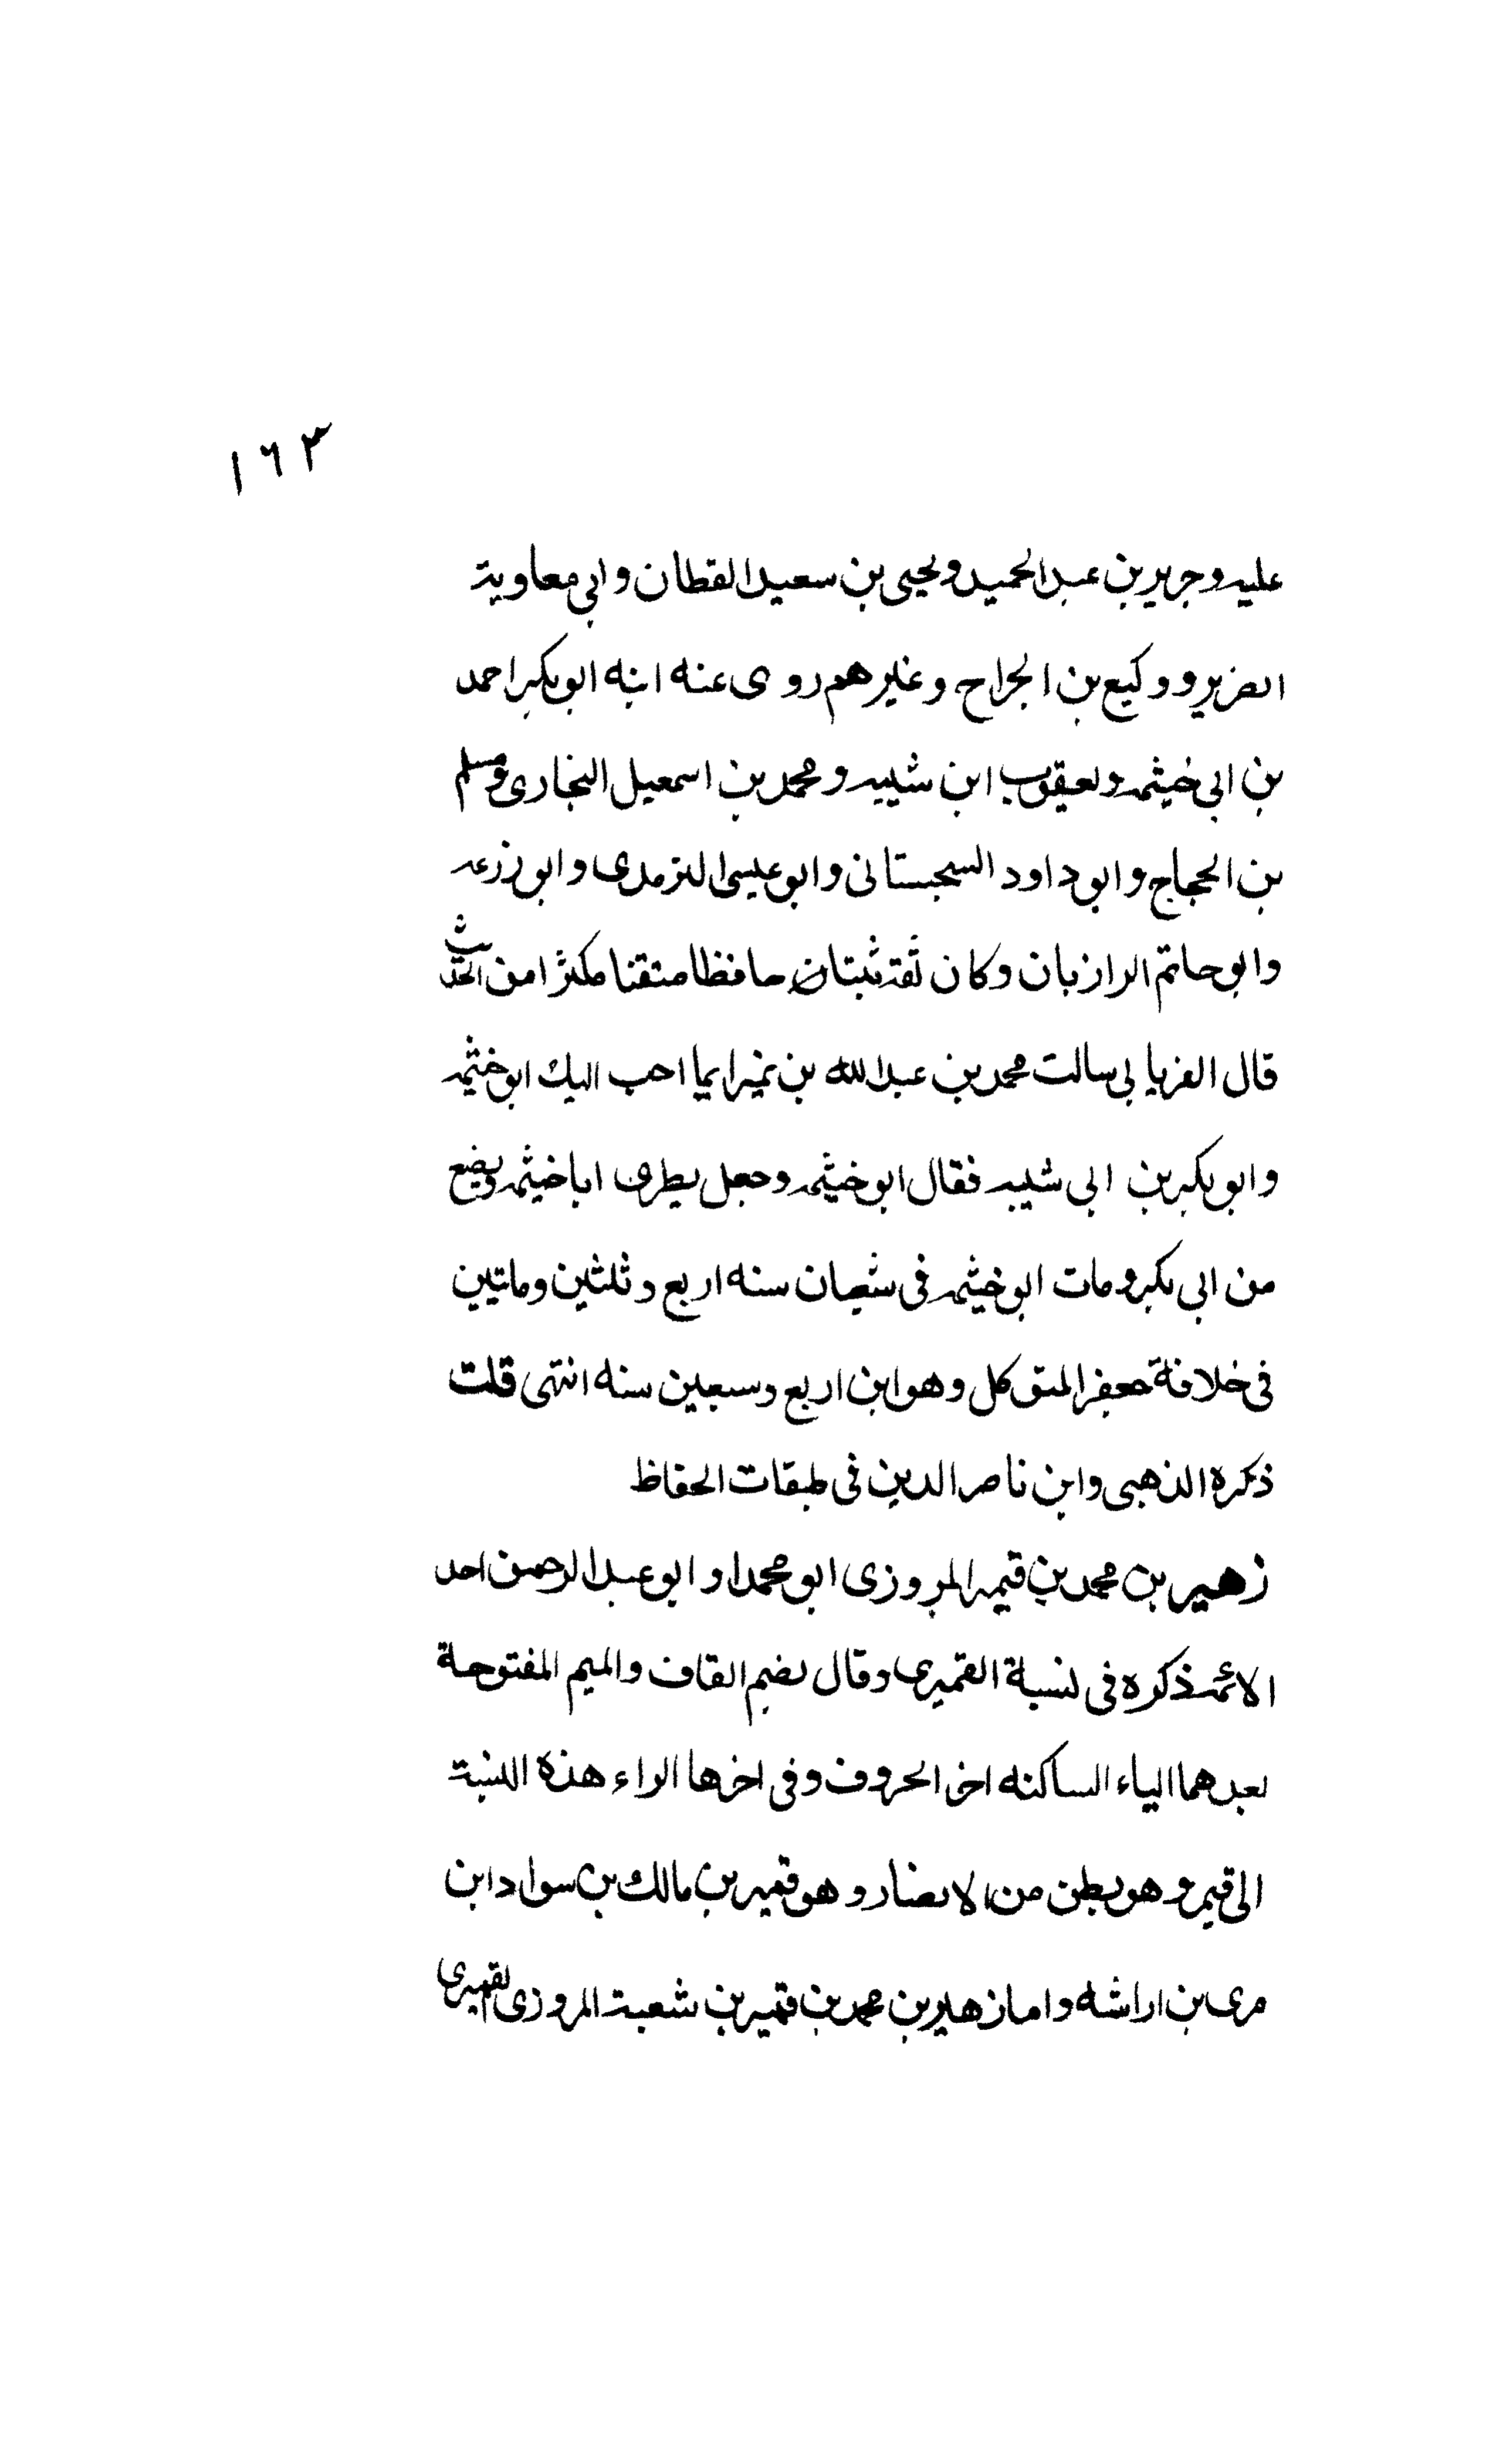 ١٦٣
عليه وجرير بن عبد الحميد ويحيى بن سعيد القطان وابي معاوية
الضرير ووكيع بن الجراح وغيرهم روى عنه ابنه ابو بكر احمد
بن ابي خيثمه ويعقوب ابن شيبه ومحمد بن اسمعيل البخارى ومسلم
بن الحجاج وابو داود السجستانى وابو عيسى الترمدى وابو زرعه
وابو حاتم الرازبان وكان ثقة ثبتا حافظا متقنا مكثرا من الحديث
قال الفريابى سالت محمد بن عبد الله بن نمير ايما احب اليك ابو خيثمه
وابو بكر بن ابى شيبه فقال ابو خيثمه وجعل يطرى ابا خيثمه ويضع
من ابى بكر ومات ابو خيثمه فى شعبان سنه اربع وثلثين وماتين
فى خلافة جعفر المتوكل وهو ابن اربع وسبعين سنه انتهى قلت
ذكره الذهبى وابن ناصر الدين فى طبقات الحفاظ
زهير بن محمد بن قيمر المروزى ابو محمد او ابو عبد الرحمن احد
الائمة ذكره فى نسبة القميرى وقال بضم القاف والميم المفتوحة
بعدهما الياء الساكنه اخر الحروف وفى اخرها الراء هذه النسبة
الى قيمر وهو بطن من الانصار وهو قمير بن مالك بن سواد ابن
مرى بن اراشه واما زهير بن محمد بن قمير بن شعبة المروزى القميرى